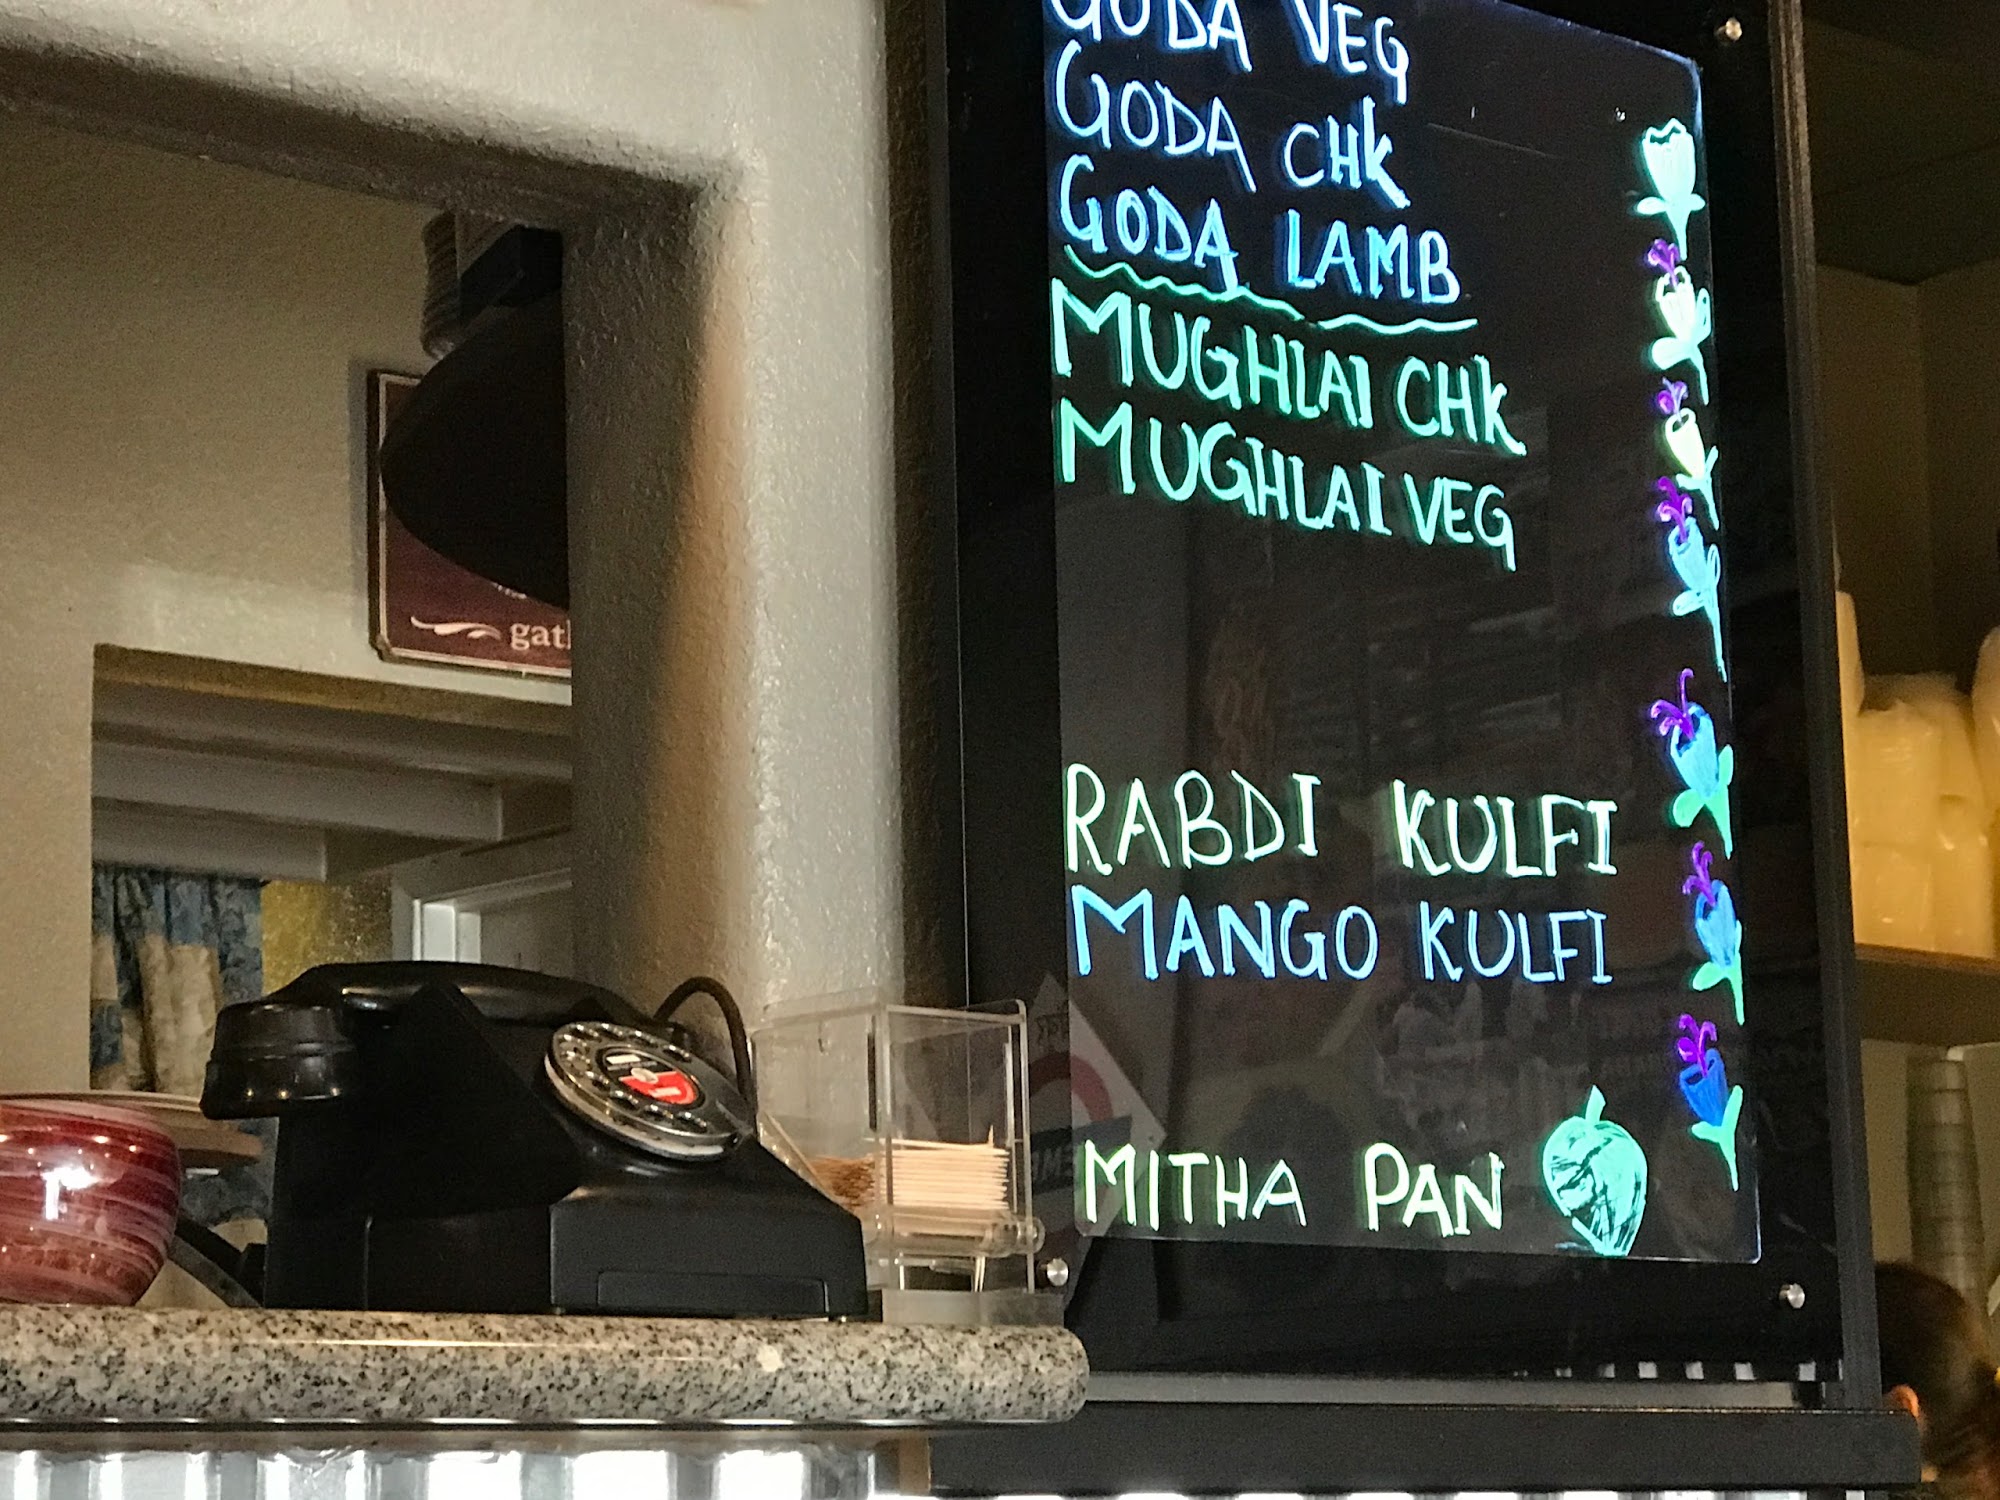 GODA VEG
GODA CHK
GODA LAMB
MUGHLAI CHK
MUGHLAI VEG
RABDI KULFI
MANGO KULFI
MITHA PAN